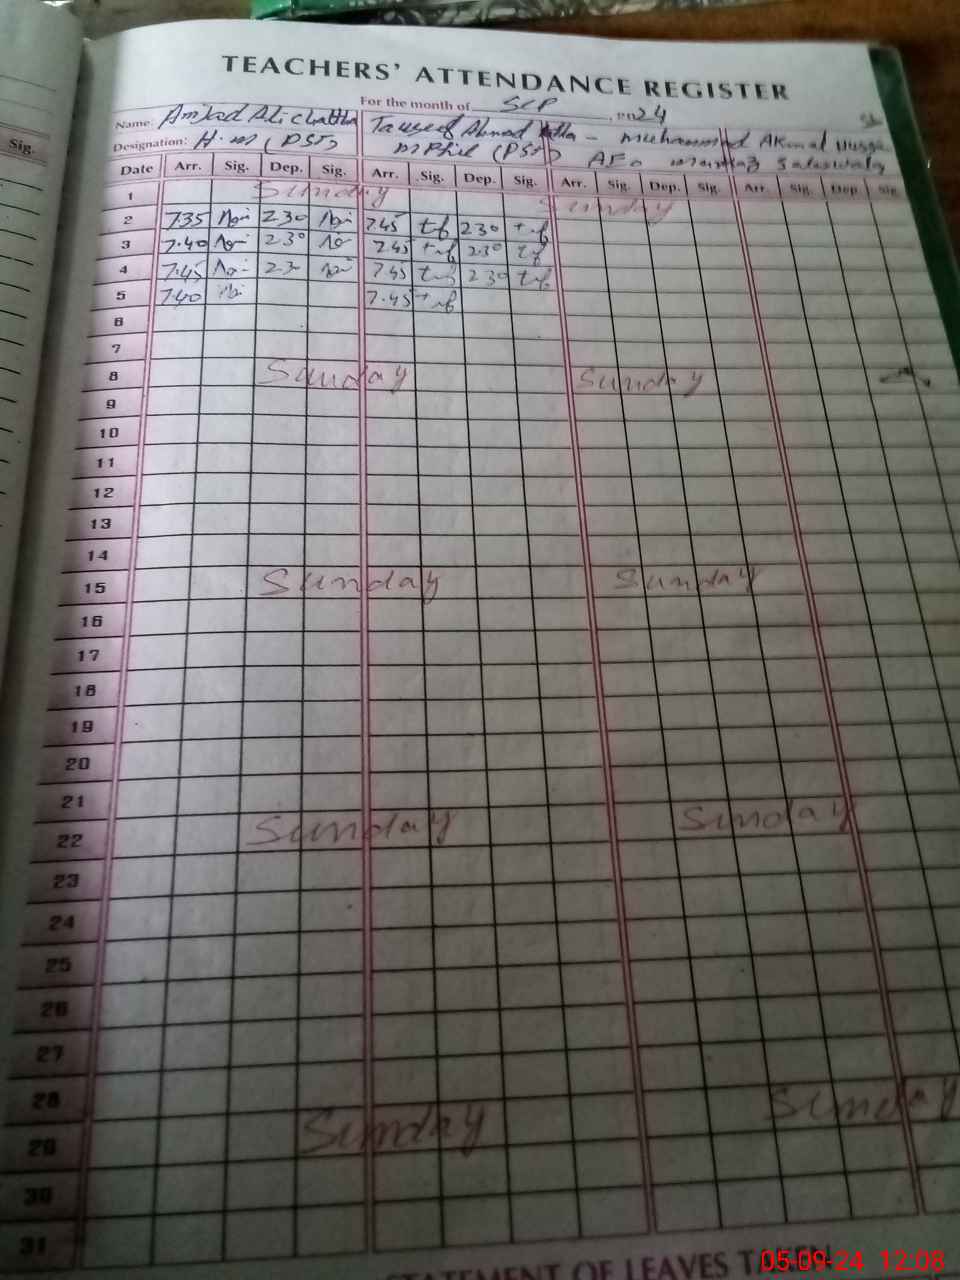 TEACHERS' ATTENDANCE REGISTER
For the month of SEP, 2024
Name: Amjad Ali Chattha Tauseef Ahmad - Muhammad Akmal
Designation: H.M (PST) M Phil (PST) AEO
Sig.
Date Arr. Sig. Dep. Sig. Arr. Sig. Dep. Sig. Arr. Sig. Dep. Sig. Arr. Sig. Dep. Sig.
1 Sunday Sunday
2 7.35 2.30 7.45 2.30
3 7.40 2.30 7.45 2.30
4 7.45 2.30 7.45 2.30
5 7.40 7.45
6
7
8 Sunday Sunday
9
10
11
12
13
14
15 Sunday Sunday
16
17
18
19
20
21
22 Sunday Sunday
23
24
25
26
27
28
29 Sunday Sunday
30
31
STATEMENT OF LEAVES TAKEN
05-09-24 12:08